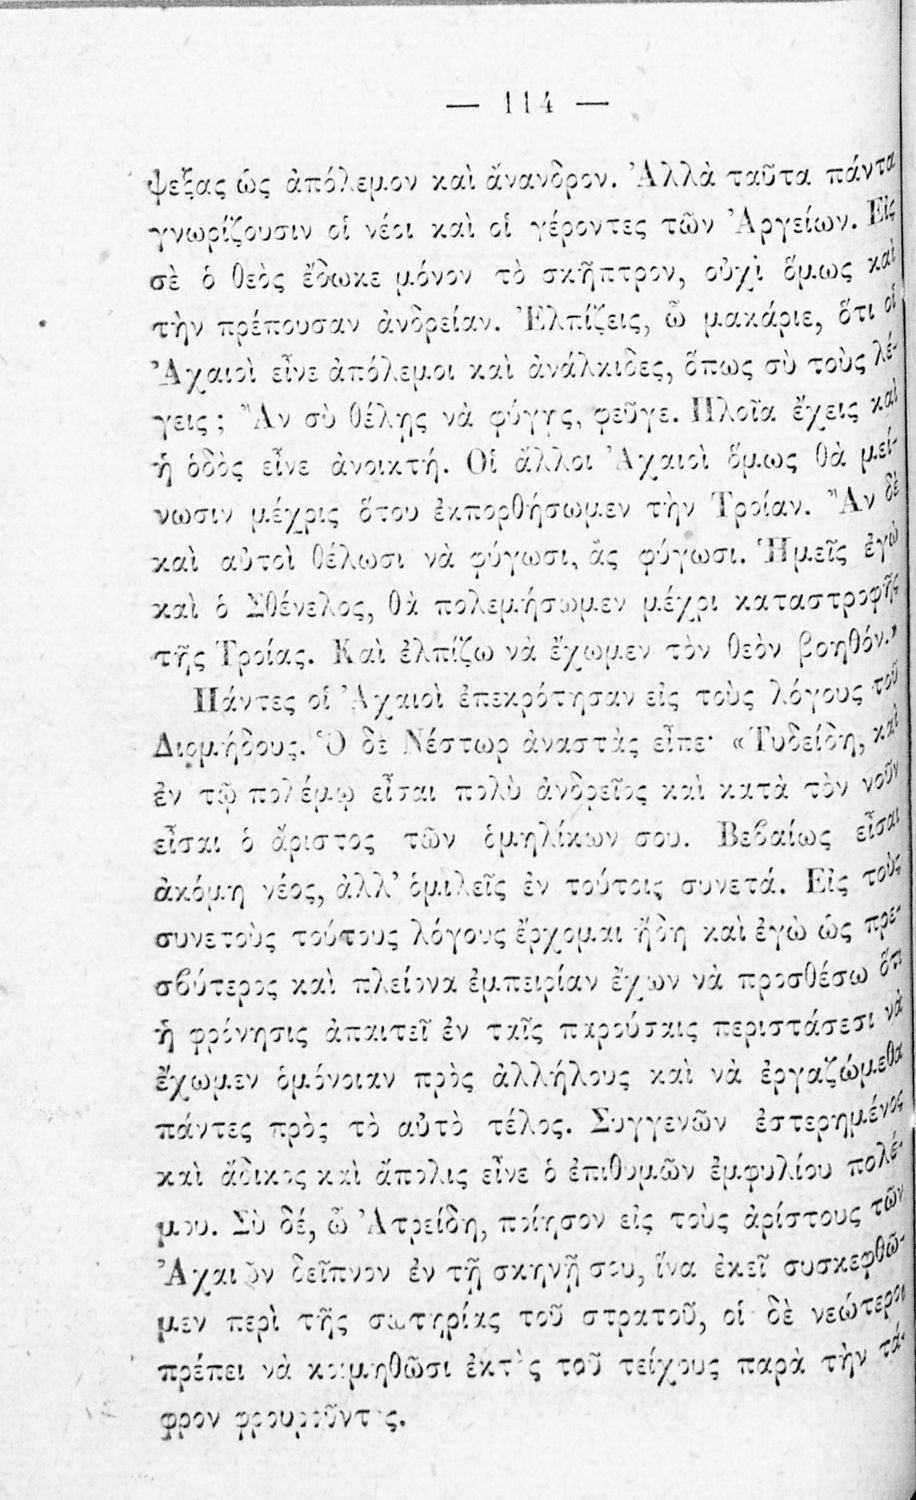 — 114 —
ψεξας ὡς ἀπόλεμον καὶ ἄνανδρον. Ἀλλὰ ταῦτα πάντα
γνωρίζουσιν οἱ νέοι καὶ οἱ γέροντες τῶν Ἀργείων. Εἰς
σὲ ὁ θεὸς ἔδωκε μόνον τὸ σκῆπτρον, οὐχὶ ὅμως καὶ
τὴν πρέπουσαν ἀνδρείαν. Ἐλπίζεις, ὦ μακάριε, ὅτι οἱ
Ἀχαιοὶ εἶνε ἀπόλεμοι καὶ ἀνάλκιδες, ὅπως σὺ τοὺς λέ-
γεις; Ἂν σὺ θέλῃς νὰ φύγῃς, φεῦγε. Πλοῖα ἔχεις καὶ
ἡ ὁδὸς εἶνε ἀνοικτή. Οἱ ἄλλοι Ἀχαιοὶ ὅμως θὰ μεί-
νωσιν μέχρις ὅτου ἐκπορθήσωμεν τὴν Τροίαν. Ἂν δὲ
καὶ αὐτοὶ θέλωσι νὰ φύγωσι, ἂς φύγωσι. Ἡμεῖς ἐγὼ
καὶ ὁ Σθένελος, θὰ πολεμήσωμεν μέχρι καταστροφῆς
τῆς Τροίας. Καὶ ἐλπίζω νὰ ἔχωμεν τὸν θεὸν βοηθόν.»
Πάντες οἱ Ἀχαιοὶ ἐπεκρότησαν εἰς τοὺς λόγους τοῦ
Διομήδους. Ὁ δὲ Νέστωρ ἀναστὰς εἶπε· «Τυδείδη, καὶ
ἐν τῷ πολέμῳ εἶσαι πολὺ ἀνδρεῖος καὶ κατὰ τὸν νοῦν
εἶσαι ὁ ἄριστος τῶν ὁμηλίκων σου. Βεβαίως εἶσαι
ἀκόμη νέος, ἀλλ' ὁμιλεῖς ἐν τούτοις συνετά. Εἰς τοὺς
συνετοὺς τούτους λόγους ἔρχομαι ἤδη καὶ ἐγὼ ὡς πρε-
σβύτερος καὶ πλείονα ἐμπειρίαν ἔχων νὰ προσθέσω ὅτι
ἡ φρόνησις ἀπαιτεῖ ἐν ταῖς παρούσαις περιστάσεσι νὰ
ἔχωμεν ὁμόνοιαν πρὸς ἀλλήλους καὶ νὰ ἐργαζώμεθα
πάντες πρὸς τὸ αὐτὸ τέλος. Συγγενῶν ἐστερημένος
καὶ ἄδικος καὶ ἄπολις εἶνε ὁ ἐπιθυμῶν ἐμφυλίου πολέ-
μου. Σὺ δέ, ὦ Ἀτρείδη, ποίησον εἰς τοὺς ἀρίστους τῶν
Ἀχαιῶν δεῖπνον ἐν τῇ σκηνῇ σου, ἵνα ἐκεῖ συσκεφθῶ-
μεν περὶ τῆς σωτηρίας τοῦ στρατοῦ, οἱ δὲ νεώτεροι
πρέπει νὰ κοιμηθῶσι ἐκτὸς τοῦ τείχους παρὰ τὴν τά-
φρον φρουροῦντες.